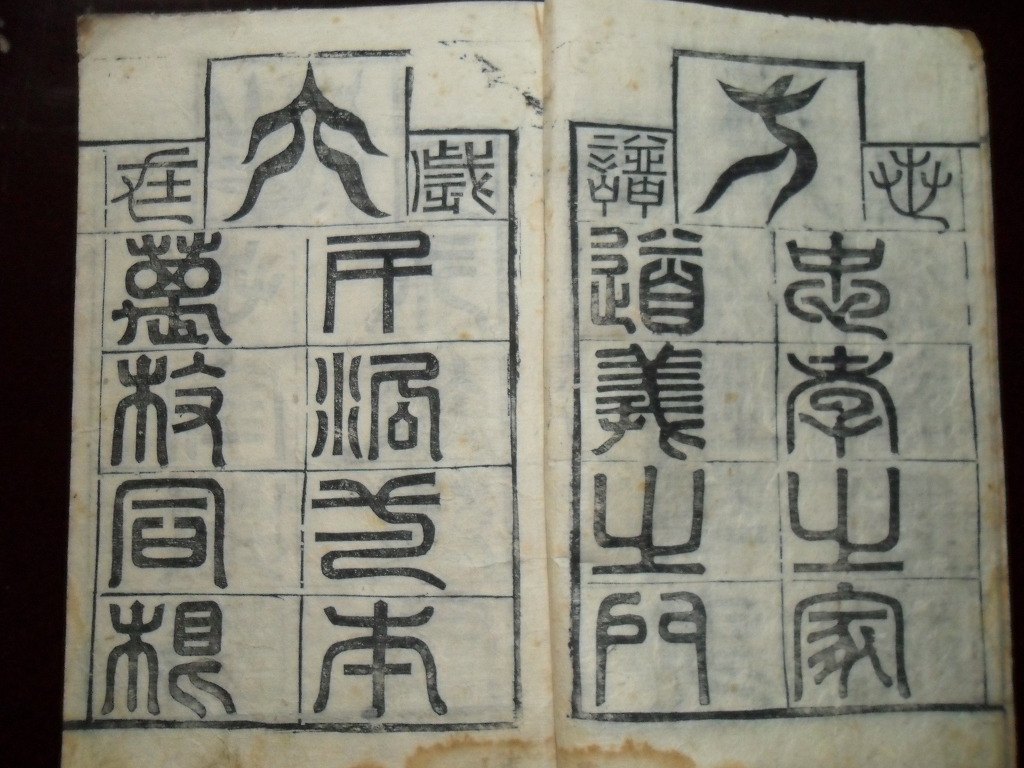 世方譜
忠孝之家
道義之門
歲大在
千派本
萬枝同根